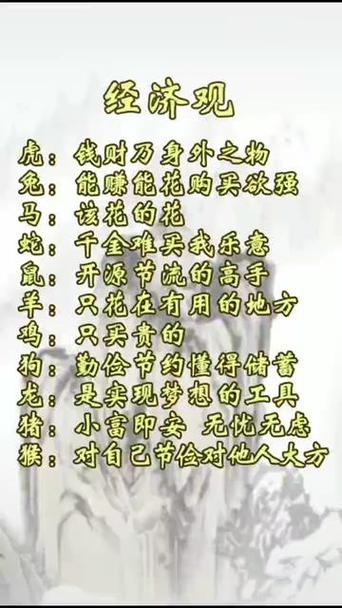 经济观
虎：钱财乃身外之物
兔：能赚能花购买欲强
马：该花的花
蛇：千金难买我乐意
鼠：开源节流的高手
羊：只花在有用的地方
鸡：只买贵的
狗：勤俭节约懂得储蓄
龙：是实现梦想的工具
猪：小富即安 无忧无虑
猴：对自己节俭对他人大方